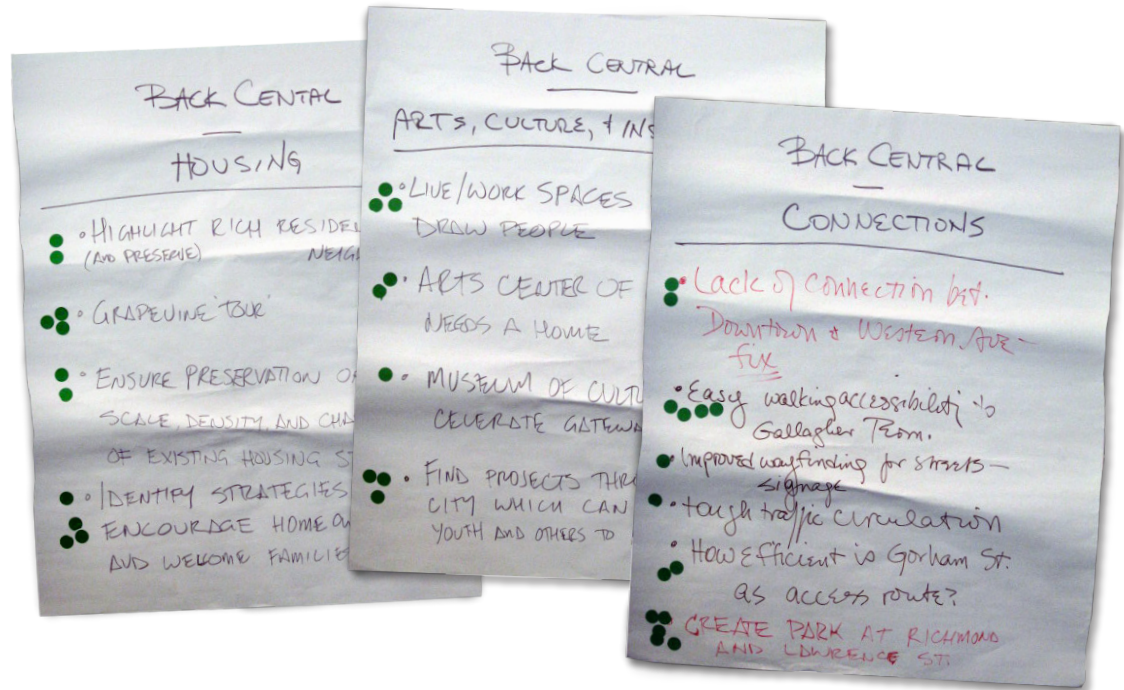 BACK CENTAL
HOUSING
• HIGHLIGHT RICH RESIDEN
(AND PRESERVE) NEIG
• GRAPEVINE 'TOUR'
• ENSURE PRESERVATION O
SCALE, DENSITY, AND CHA
OF EXISTING HOUSING ST
• IDENTIFY STRATEGIES
ENCOURAGE HOMEOW
AND WELCOME FAMILIE
BACK CENTRAL
ARTS, CULTURE, + INS
• LIVE/WORK SPACES
DRAW PEOPLE
• ARTS CENTER OF
NEEDS A HOME
• MUSEUM OF CULTU
CELERATE GATEWA
• FIND PROJECTS THR
CITY WHICH CAN
YOUTH AND OTHERS TO
BACK CENTRAL
CONNECTIONS
• Lack of connection bet.
Downtown & Western Ave –
fix
• Easy walking accessibility to
Gallagher Term.
• Improved wayfinding for streets –
signage
• tough traffic circulation
• How Efficient is Gorham St.
as access route?
• CREATE PARK AT RICHMOND
AND LAWRENCE ST.